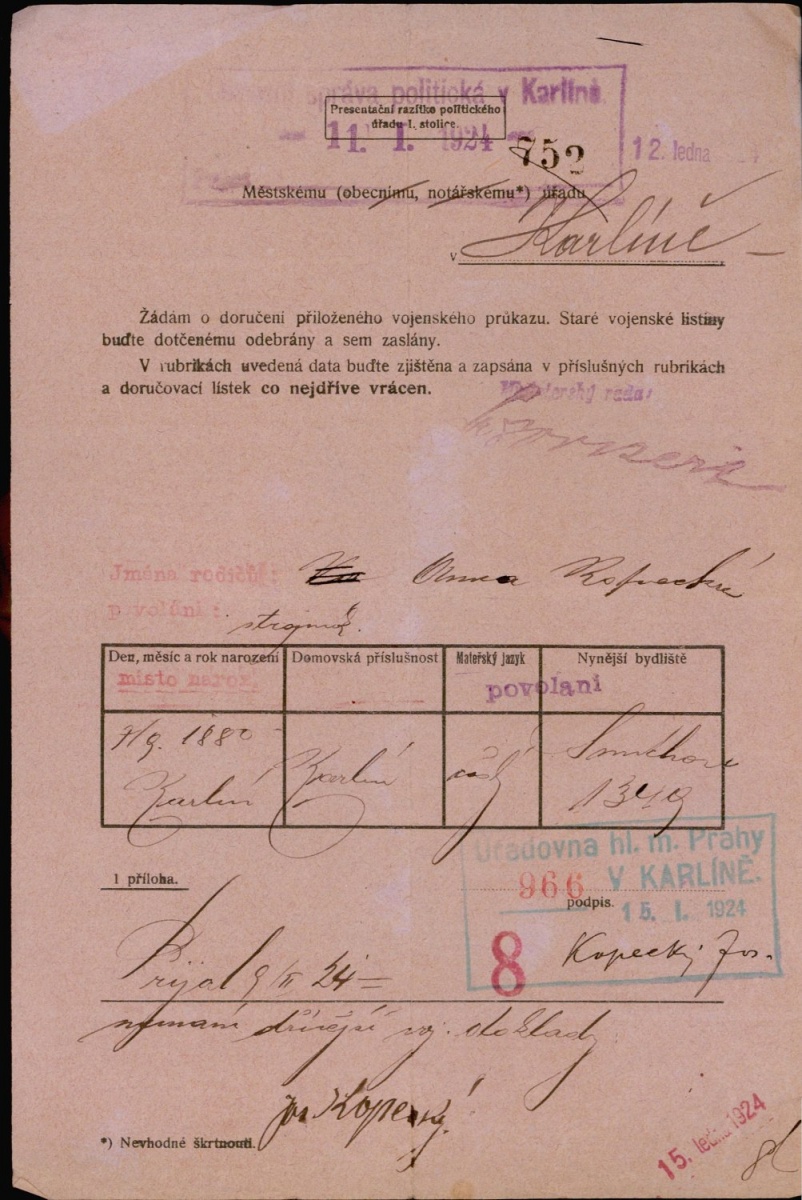 správa politická v Karlíně
Presentační razítko politického
úřadu I. stolice.
11. I. 1924
752
12. ledna
Městskému (obecnímu, notářskému*) úřadu
v Karlíně
Žádám o doručení přiloženého vojenského průkazu. Staré vojenské listiny
buďte dotčenému odebrány a sem zaslány.
V rubrikách uvedená data buďte zjištěna a zapsána v příslušných rubrikách
a doručovací lístek co nejdříve vrácen.
rada:
Jména rodičů: Anna Kopecká
povolání:
Den, měsíc a rok narození Domovská příslušnost Mateřský jazyk Nynější bydliště
místo naroz. povolani
7/9. 1880 Karlín český Smíchov
Karlín 1349
Úřadovna hl. m. Prahy
1 příloha. 966 V KARLÍNĚ.
podpis. 15. I. 1924
8 Kopecký Jos.
Přijal 9/II 24
nemám dřívější voj. doklady
Jos Kopecký
*) Nevhodné škrtnouti.
15. ledna 1924